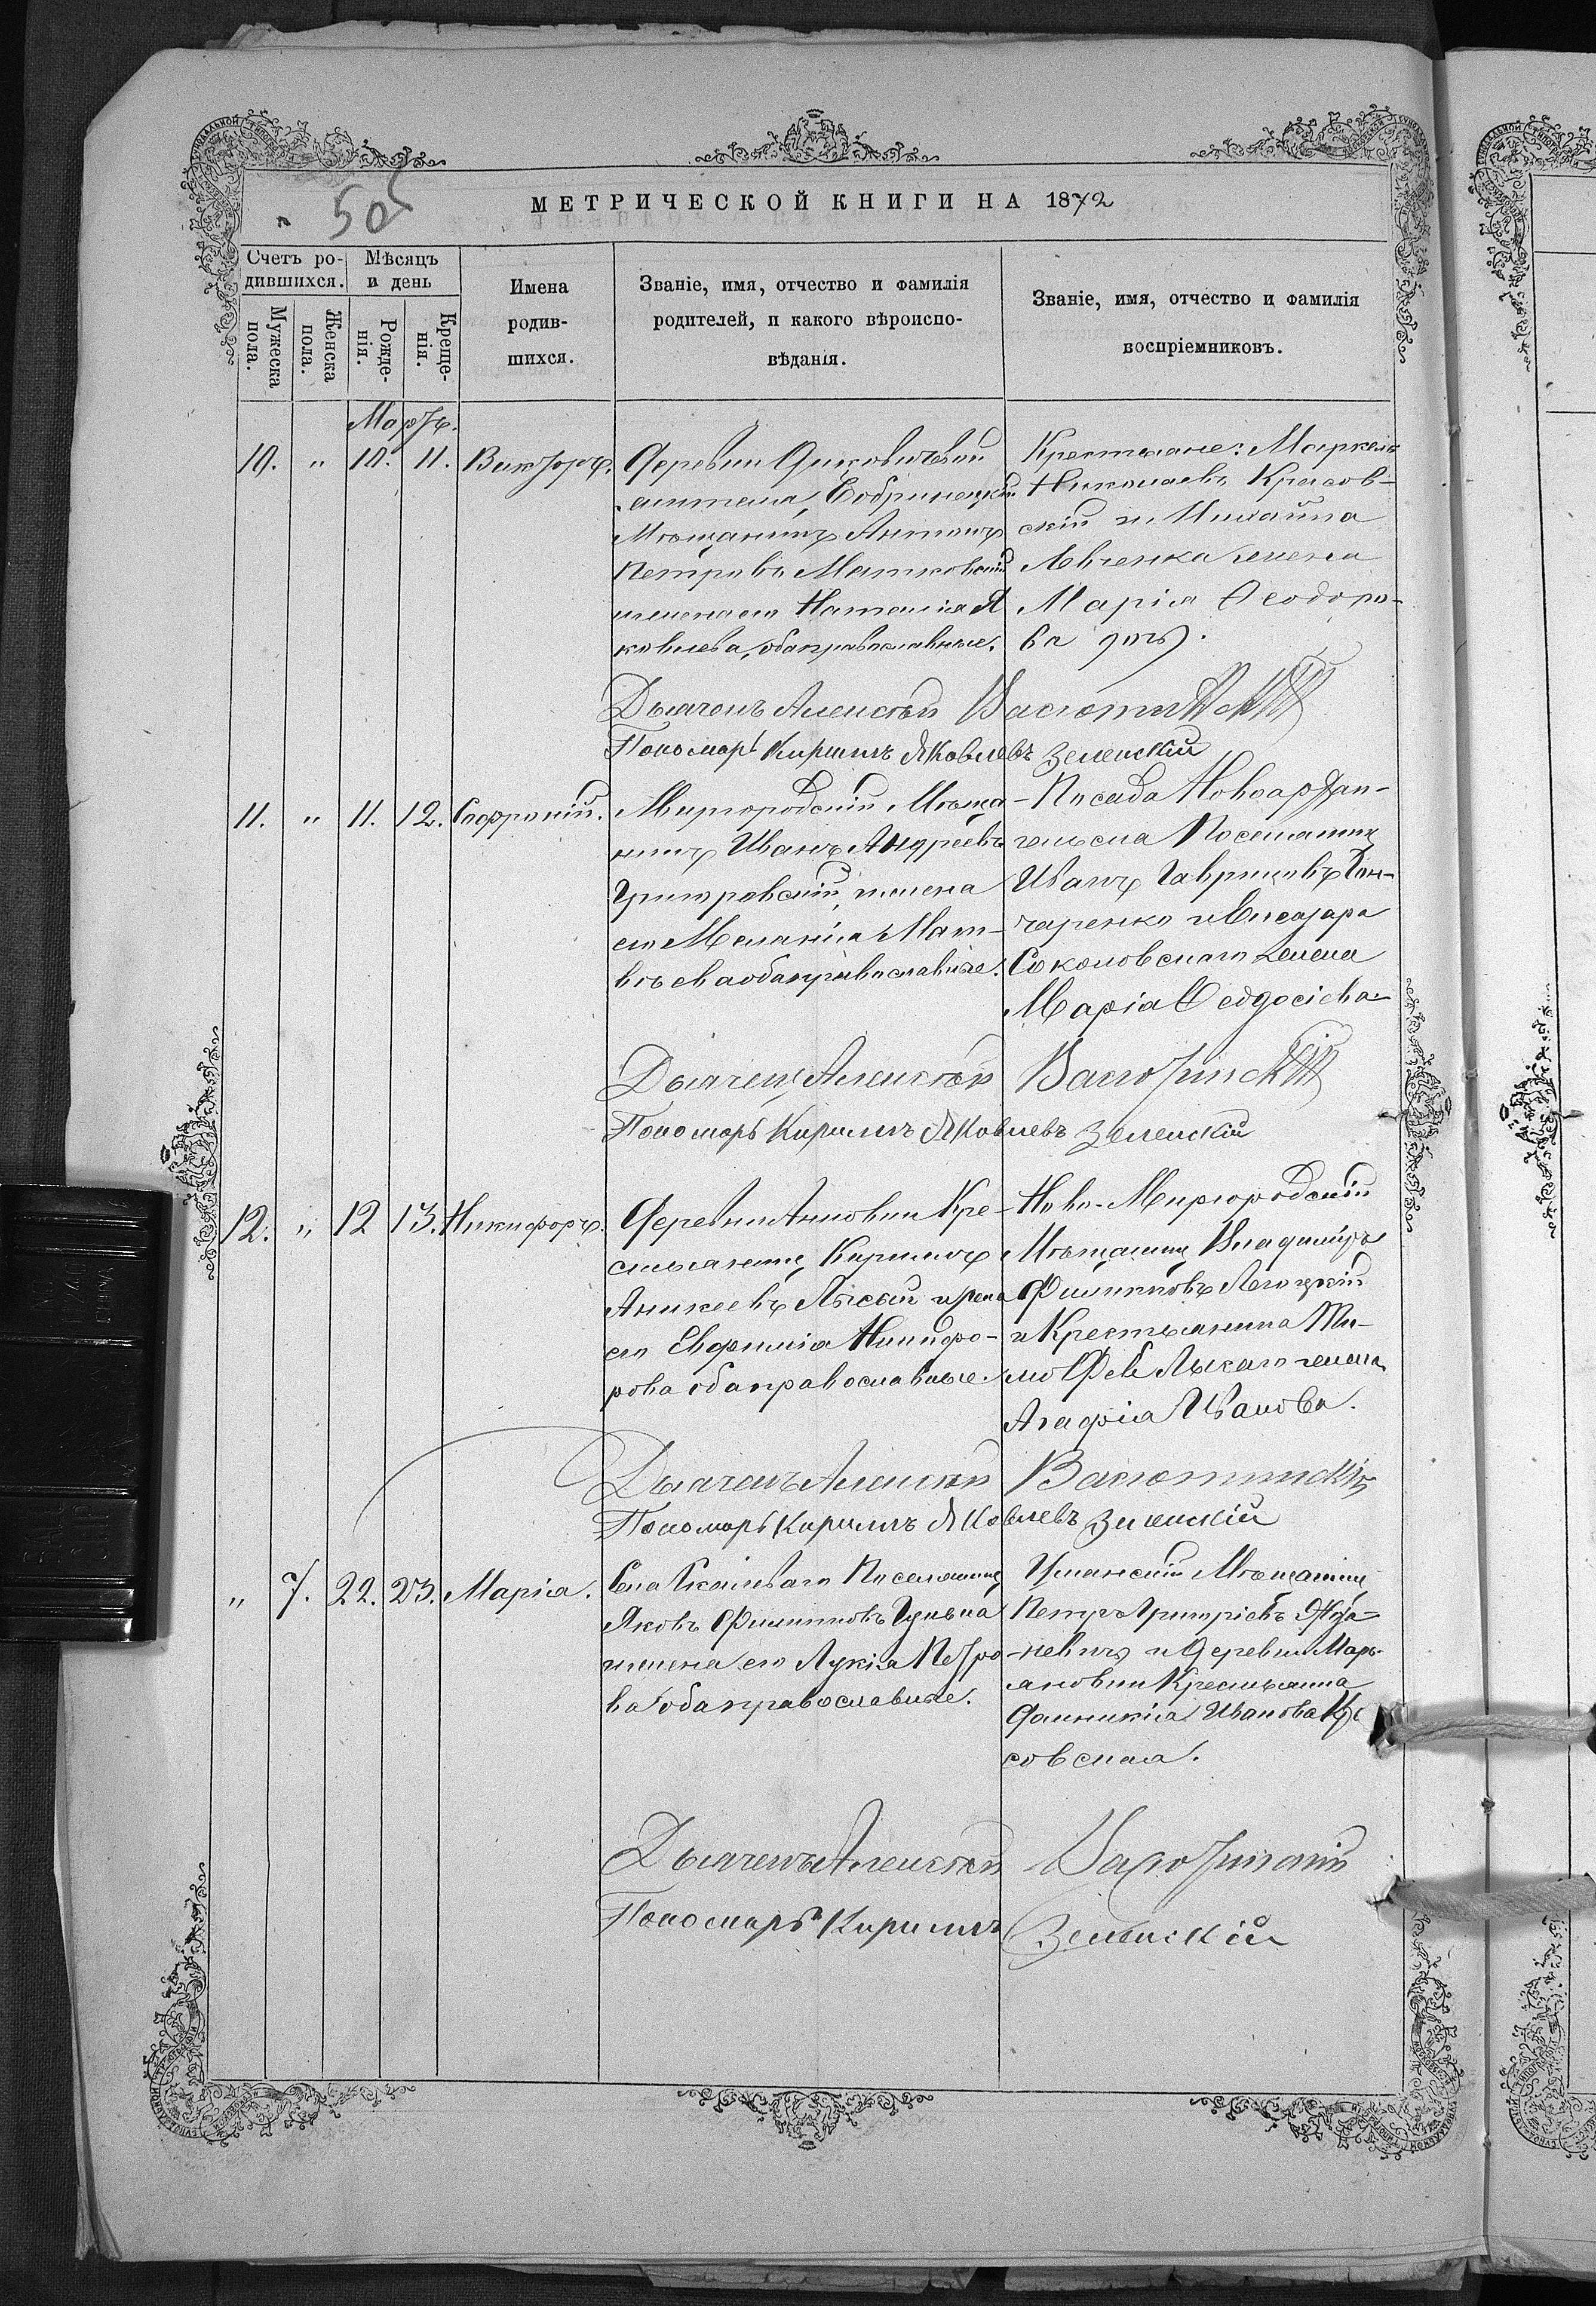 50
МЕТРИЧЕСКОЙ КНИГИ НА 1872
Счетъ ро-
дившихся.
Мужеска
пола.
Женска
пола.
Мѣсяцъ
и день
Рожде-
нія.
Креще-
нія.
Имена
родив-
шихся.
Званіе, имя, отчество и фамилія
родителей, и какого вѣроиспо-
вѣданія.
Званіе, имя, отчество и фамилія
воспріемниковъ.
Мартъ.
10. " 10. 11. Викторъ.
Деревни
жители, Бобринецкій
Мѣщанинъ Антонъ
Петровъ Матковскій
и жена его Наталія Я
ковлева, оба православные.
Крестьяне: Маркелъ
Николаевъ Красов-
скій и Михаила
Левченка жена
Марія Ѳеодоро-
ва дочь.
Дьячекъ Алексѣй Васютинскій
Пономарь Кириллъ Яковлевъ Зеленскій
11. " 11. 12. Софроній.
Миргородскій Мѣща-
нинъ Иванъ Андреевъ
жена
его Меланія Мат-
вѣева оба православные.
Посада Новоархан-
гельска Поселянинъ
Иванъ Гавриловъ Гон-
чаренко и Елеазара
Соколовскаго жена
Марія Ѳеодосіева
Дьячекъ Алексѣй Васютинскій
Пономарь Кириллъ Яковлевъ Зеленскій
12. " 12 13. Никифоръ.
Деревни Анновки Кре-
стьянинъ Кириллъ
Аникеевъ Лысый и жена
его Евфимія Никифо-
рова оба православные.
Ново-Миргородскій
Мѣщанинъ Владиміръ
Филипповъ
и Крестьянина Ти-
моѲея Лысаго жена
Агафія Иванова.
Дьячекъ Алексѣй Васютинскій
Пономарь Кириллъ Яковлевъ Зеленскій
" 7. 22. 23. Марія.
Села Скалеваго Поселянинъ
Яковъ Филипповъ
и жена его Лукія Петро
ва оба православные.
Уманскій Мѣщанинъ
Петръ Григоріевъ
и Деревни Марь-
яновки Крестьянка
Домникія Иванова Кра
совская.
Дьячекъ Алексѣй Васютинскій
Пономарь Кириллъ Зеленскій